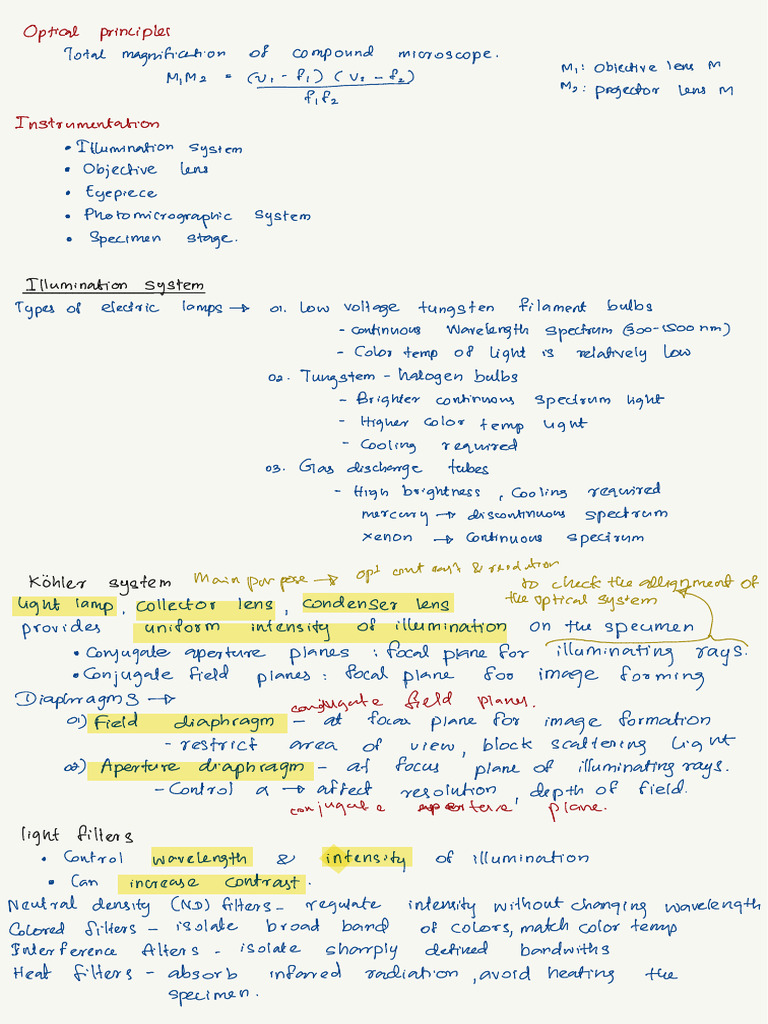 Optical principles
Total magnification of compound microscope.
M₁M₂ = (v₁ - f₁) (v₂ - f₂)
f₁f₂
M₁: Objective lens M
M₂: projector lens M
Instrumentation
• Illumination system
• Objective lens
• Eyepiece
• Photomicrographic system
• Specimen stage.
Illumination system
Types of electric lamps → 01. Low voltage tungsten filament bulbs
- continuous wavelength spectrum (300-1500 nm)
- Color temp of light is relatively low
02. Tungstem - halogen bulbs
- Brighter continuous spectrum light
- Higher color temp light
- Cooling required
03. Gas discharge tubes
- High brightness, Cooling required
mercury → discontinuous spectrum
xenon → Continuous spectrum
Köhler system Main purpose → opt contrast & resolution
to check the allignment of
the optical system
light lamp, collector lens, condenser lens
provides uniform intensity of illumination on the specimen
• Conjugate aperture planes : focal plane for illuminating rays.
• Conjugate field planes : focal plane for image forming
Diaphragms →
conjugate field planes.
01) Field diaphragm - at focus plane for image formation
- restrict area of view, block scattering light
02) Aperture diaphragm - at focus plane of illuminating rays.
- Control α → affect resolution, depth of field.
conjugate aperture plane.
light filters
• Control wavelength & intensity of illumination
• Can increase contrast.
Neutral density (ND) filters - regulate intensity without changing wavelength
Colored filters - isolate broad band of colors, match color temp
Interference filters - isolate sharply defined bandwiths
Heat filters - absorb infared radiation, avoid heating the
specimen.